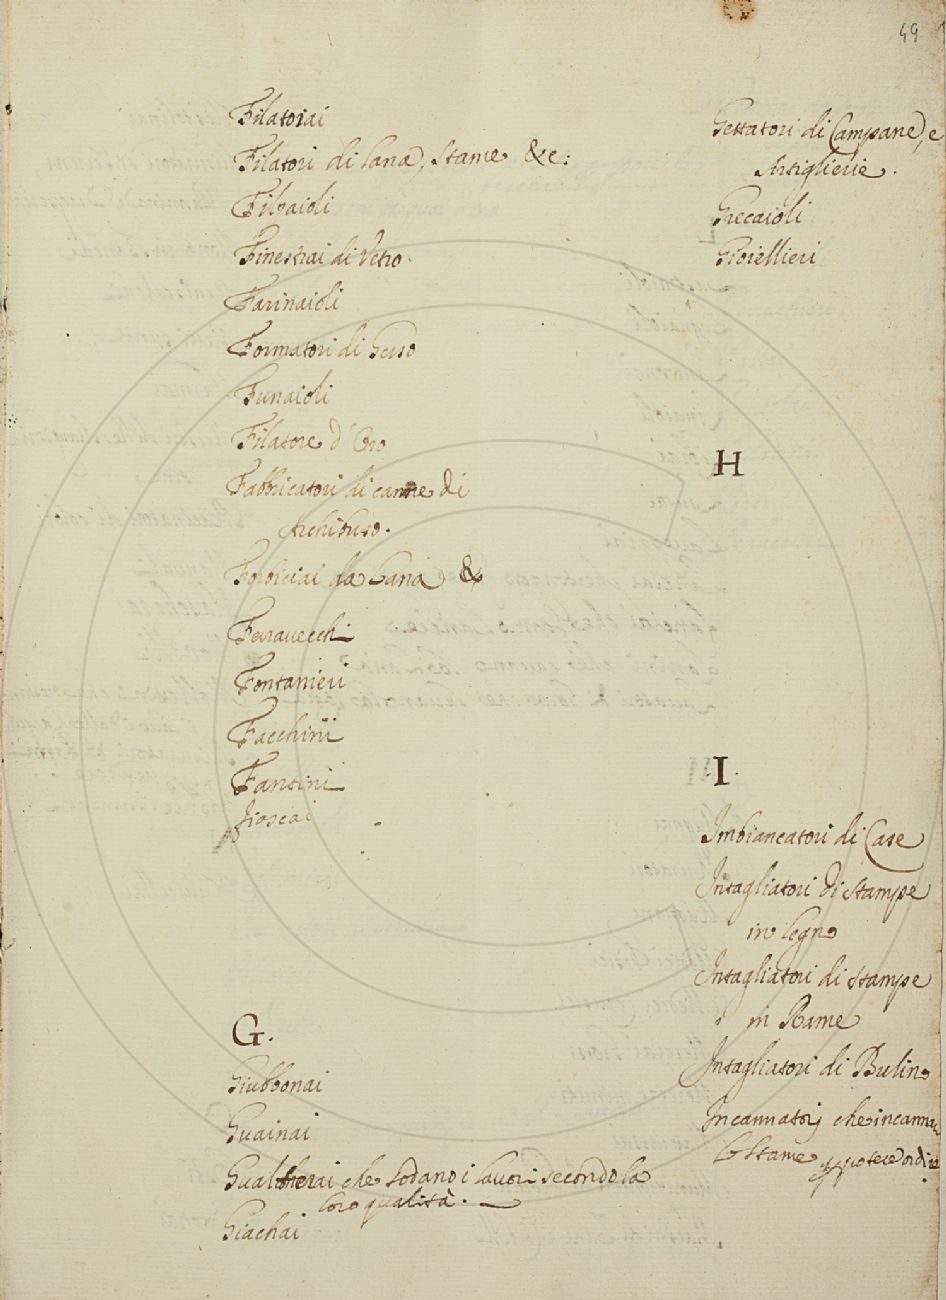 49
Filatoiai
Filatori di lana, stame &c:
Filvaioli
Finestrai di Vetro.
Farinaioli
Formatori di Gesso
Funaioli
Filatore d'Oro
Fabbricatori di canne di
Archibuso.
Forbiciai da Lana &
Ferravecchi
Fontanieri
Facchini
Fantini
fioscai
G.
Giubbonai
Guainai
Gualcherai che sodano i lavori secondo la
loro qualità.
Giachai
Gettatori di Campane, e
Artiglierie.
Grecaioli
Gioiellieri
H
I.
Imbiancatori di Case
Intagliatori di stampe
in legno
Intagliatori di stampe
in Rame
Intagliatori di Bulino
Incannatorj che incanna
lo stame